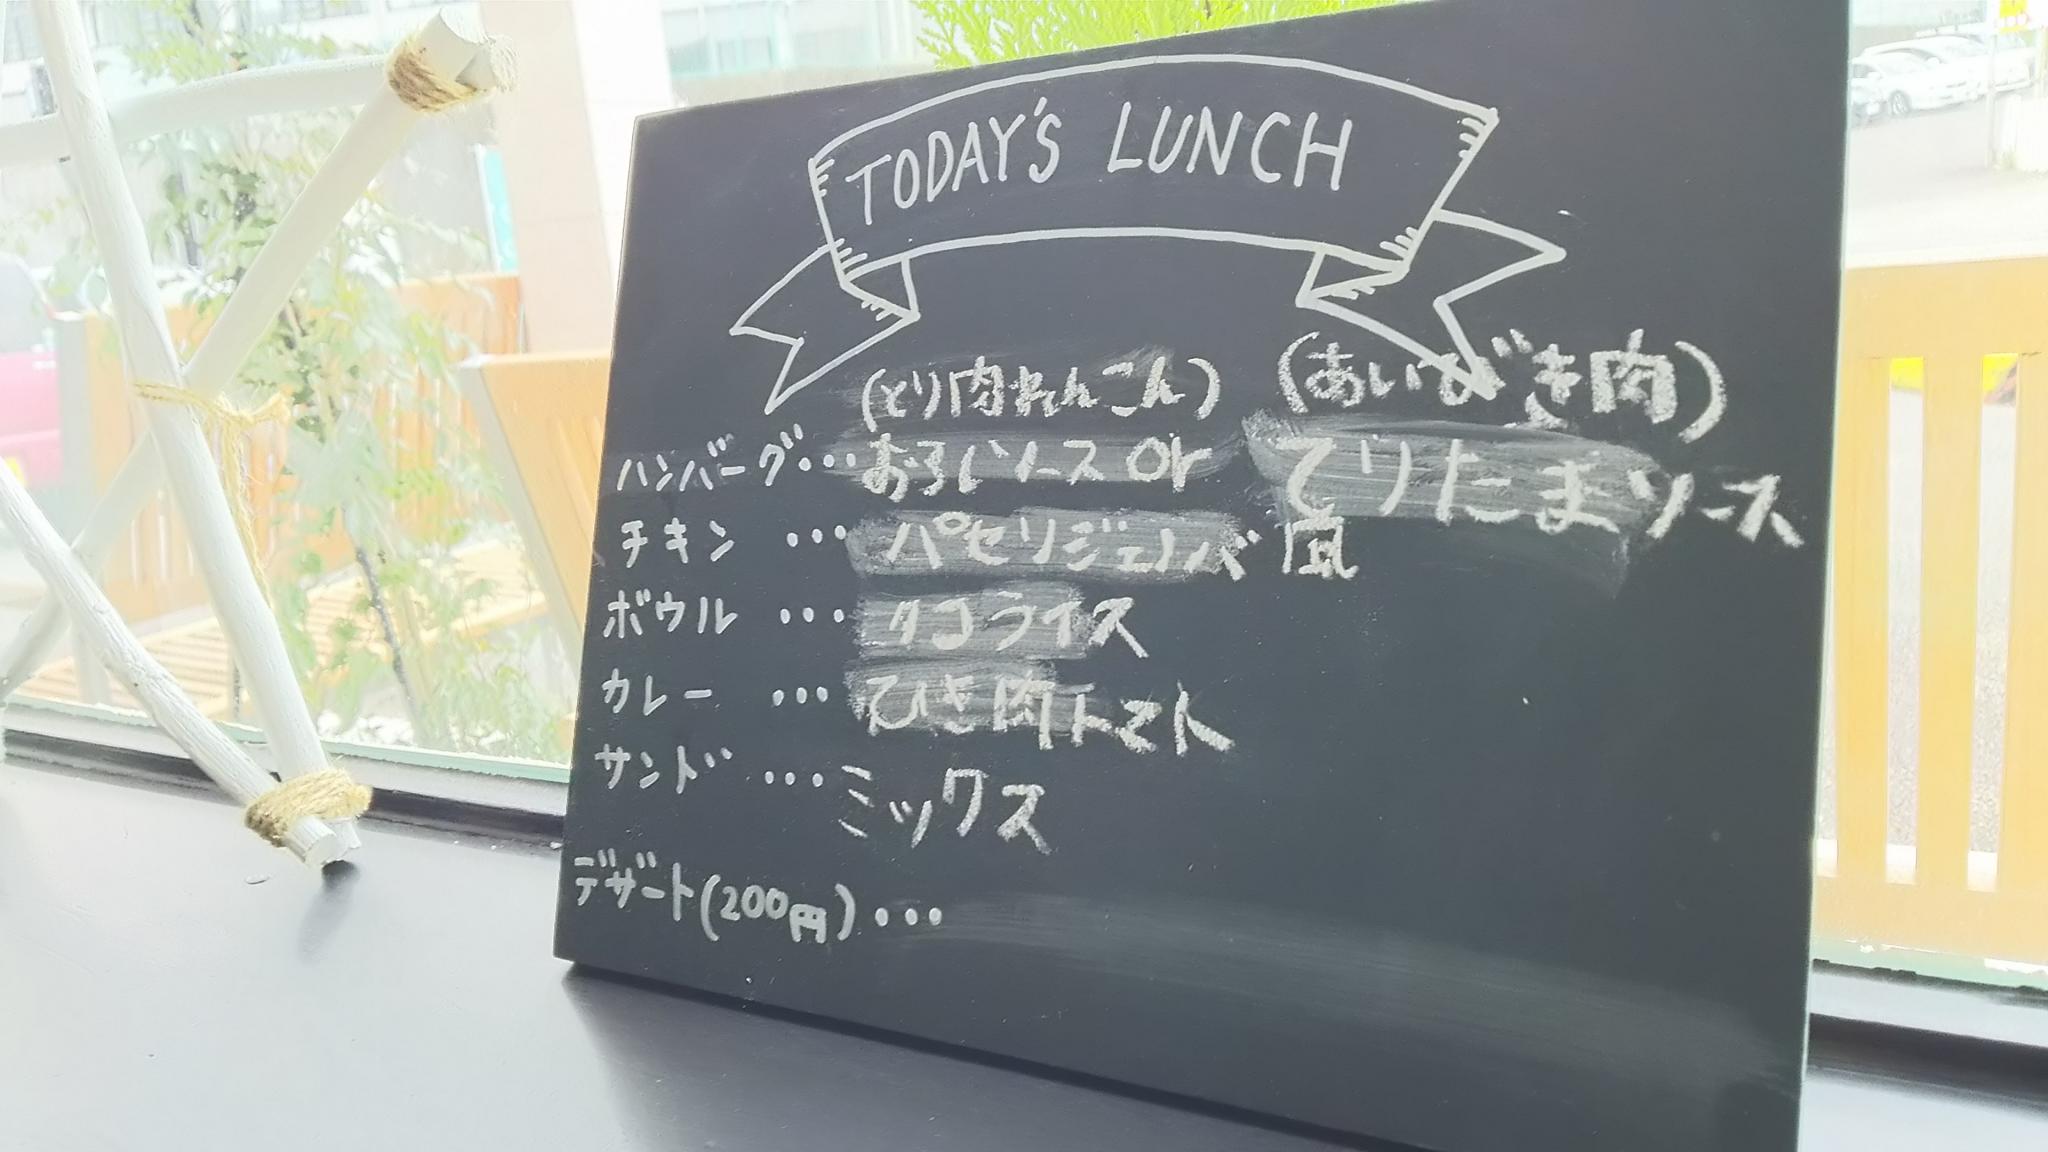 TODAY'S LUNCH
(とり肉れんこん) (あいびき肉)
ハンバーグ・・・おろしソース or てりたまソース
チキン ・・・パセリジェノバ風
ボウル ・・・タコライス
カレー ・・・ひき肉トマト
サンド ・・・ミックス
デザート(200円)・・・